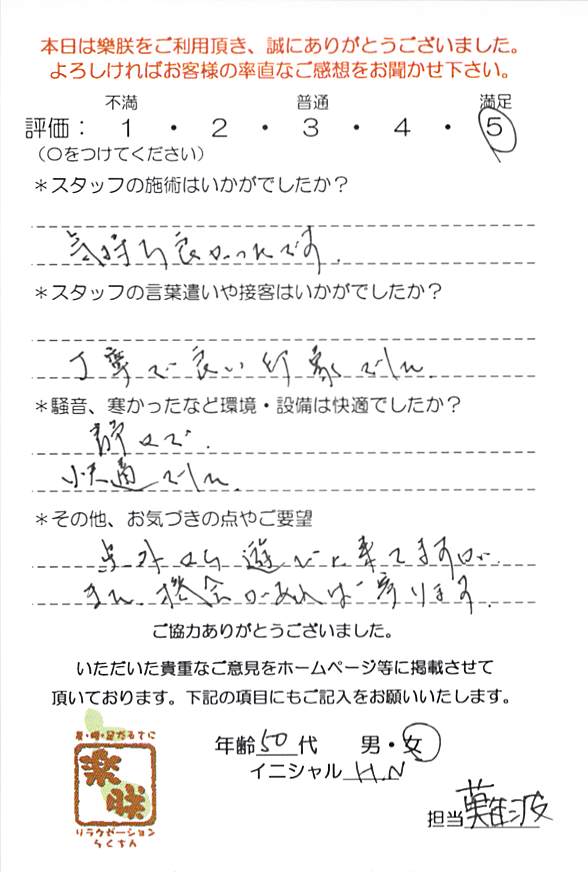 本日は樂朕をご利用頂き、誠にありがとうございました。
よろしければお客様の率直なご感想をお聞かせ下さい。
不満 普通 満足
評価： 1 ・ 2 ・ 3 ・ 4 ・ 5
（○をつけてください）
＊スタッフの施術はいかがでしたか？
気持ち良かったです。
＊スタッフの言葉遣いや接客はいかがでしたか？
丁寧で良い印象でした。
＊騒音、寒かったなど環境・設備は快適でしたか？
静かで、
快適でした。
＊その他、お気づきの点やご要望
県外から遊びに来てますが、
また、機会があれば寄ります。
ご協力ありがとうございました。
いただいた貴重なご意見をホームページ等に掲載させて
頂いております。下記の項目にもご記入をお願いいたします。
年齢 50 代 男・女
イニシャル H.N
担当 難波
樂朕
リラクゼーション
らくちん